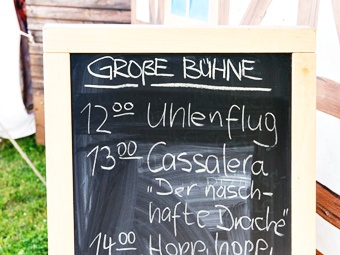 GROßE BÜHNE
12⁰⁰ Uhlenflug
13⁰⁰ Cassalera
"Der nasch-
hafte Drache"
14⁰⁰ Hopp, hopp,